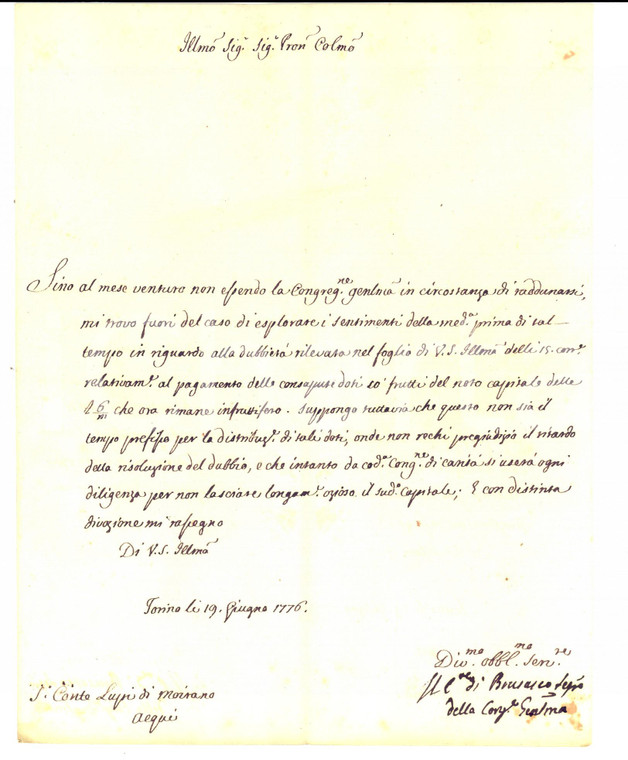 Illmõ Sig.r Sig.r Pron Colmõ
Sino al mese venturo non essendo la Congreg.ne genlnia in circostanza di raddunarsi,
mi trovo fuori del caso di esplorare i sentimenti della med.a prima di tal
tempo in riguardo alla dubbietà rilevata nel foglio di V.S. Illmã delli 15. corr.e
relativam.e al pagamento delle consapute doti co' frutti del noto capitale delle
6/m che ora rimane infruttifero. Suppongo tuttavia che questo non sia il
tempo prefisso per la distribuz.e di tali doti, onde non rechi pregiudizio il ritardo
della risoluzione del dubbio, e che intanto da cod.a Cong.ne di carità si userà ogni
diligenza per non lasciare longam.e ozioso il sud.o capitale; E con distinta
divozione mi rassegno
Di V.S. Illmã
Torino li 19. Giugno 1776.
Div.mo obbl.mo serv.re
di Brusasco
della Cong.e Genlnia
S.r Conte Lupi di Moirano
Acqui